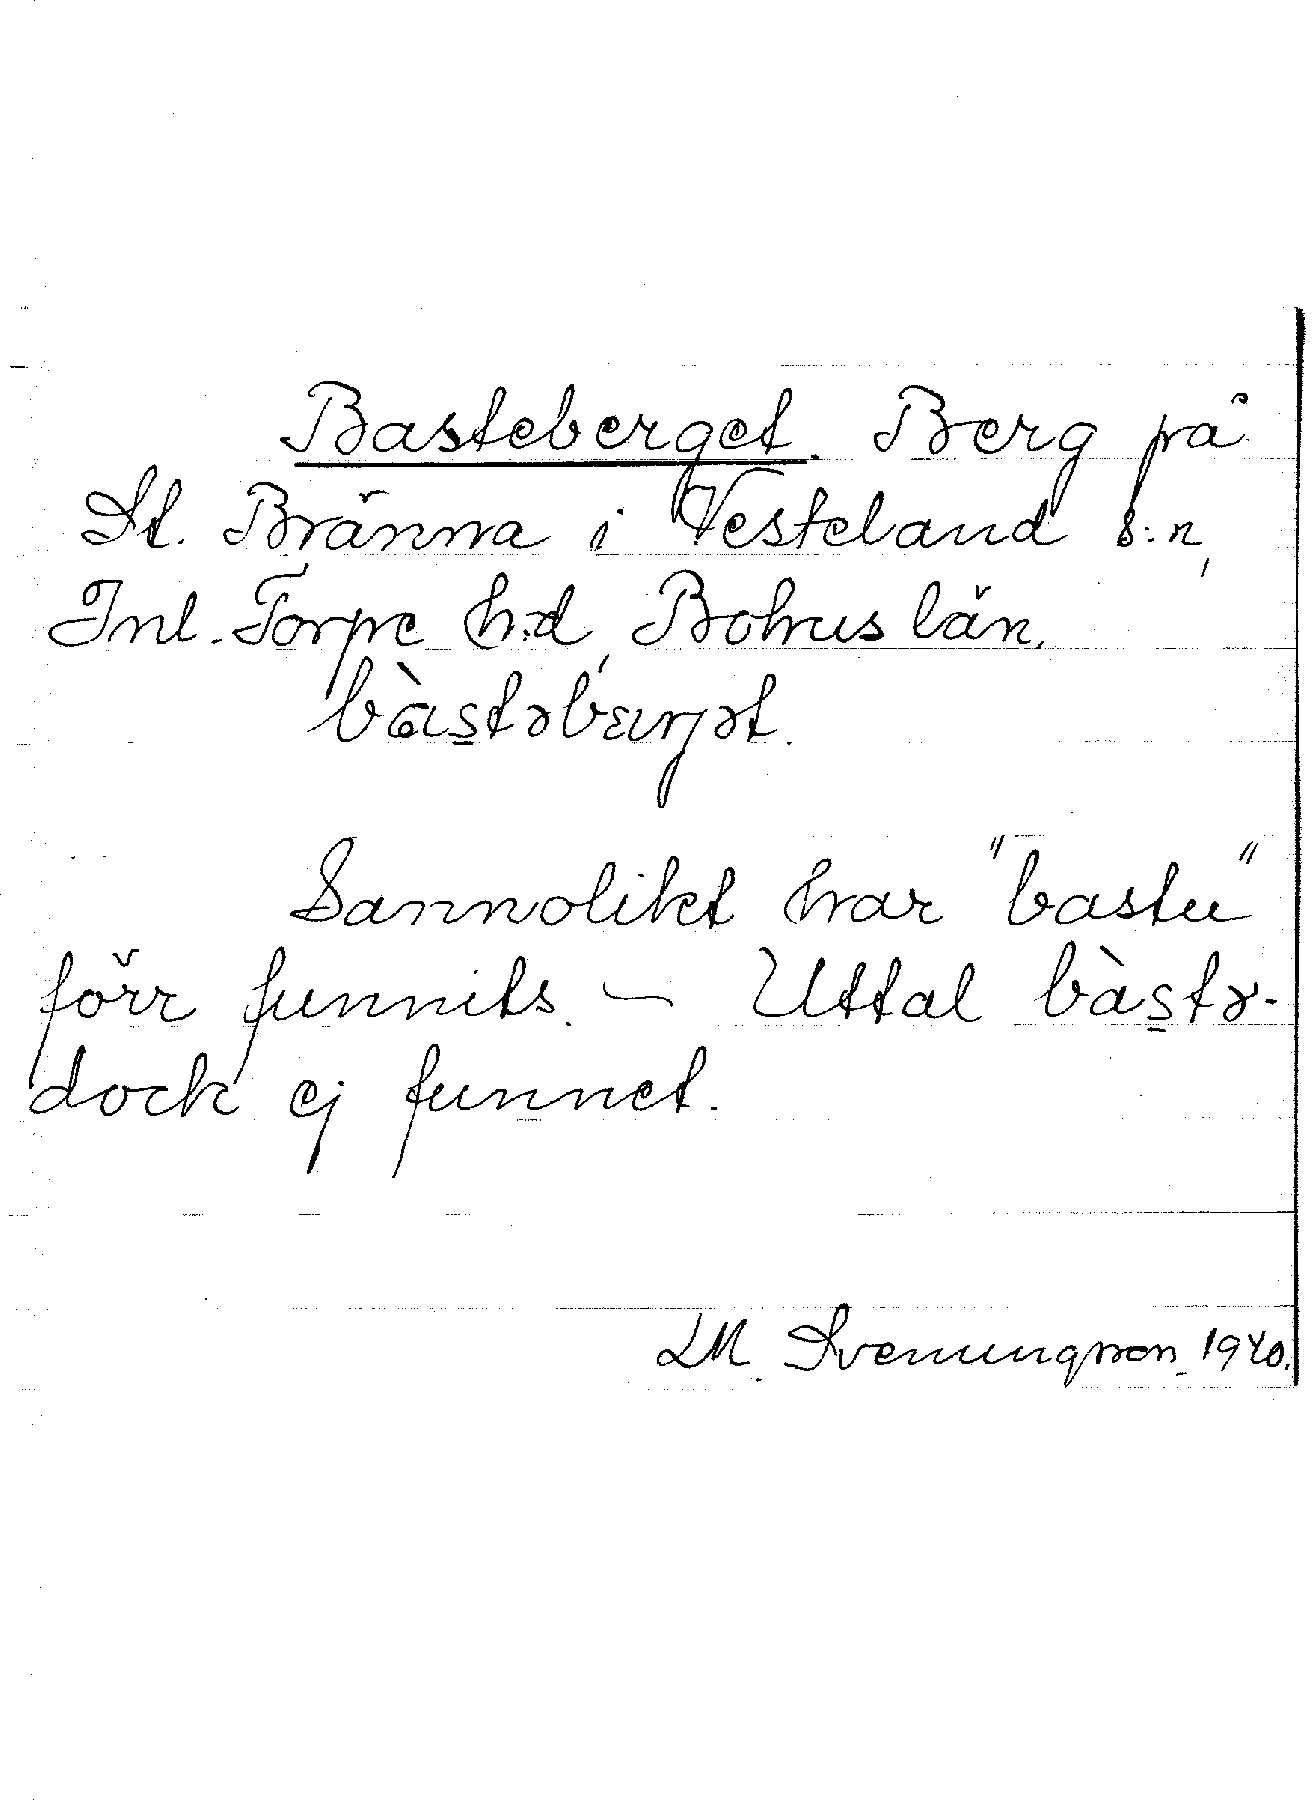 Basteberget. Berg på
St. Bränna i Vesteland s:n,
Inl. Torpe h:d, Bohus län.
bàstəbærjət.
Sannolikt har "bastu"
förr funnits. — Uttal bàstə-
dock ej funnet.
LM. Svenungsson 1940.